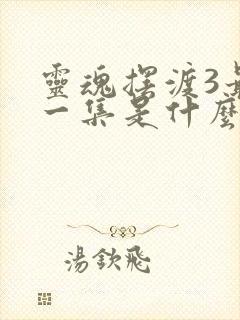 靈魂擺渡3
一集是什麼
湯欽飛